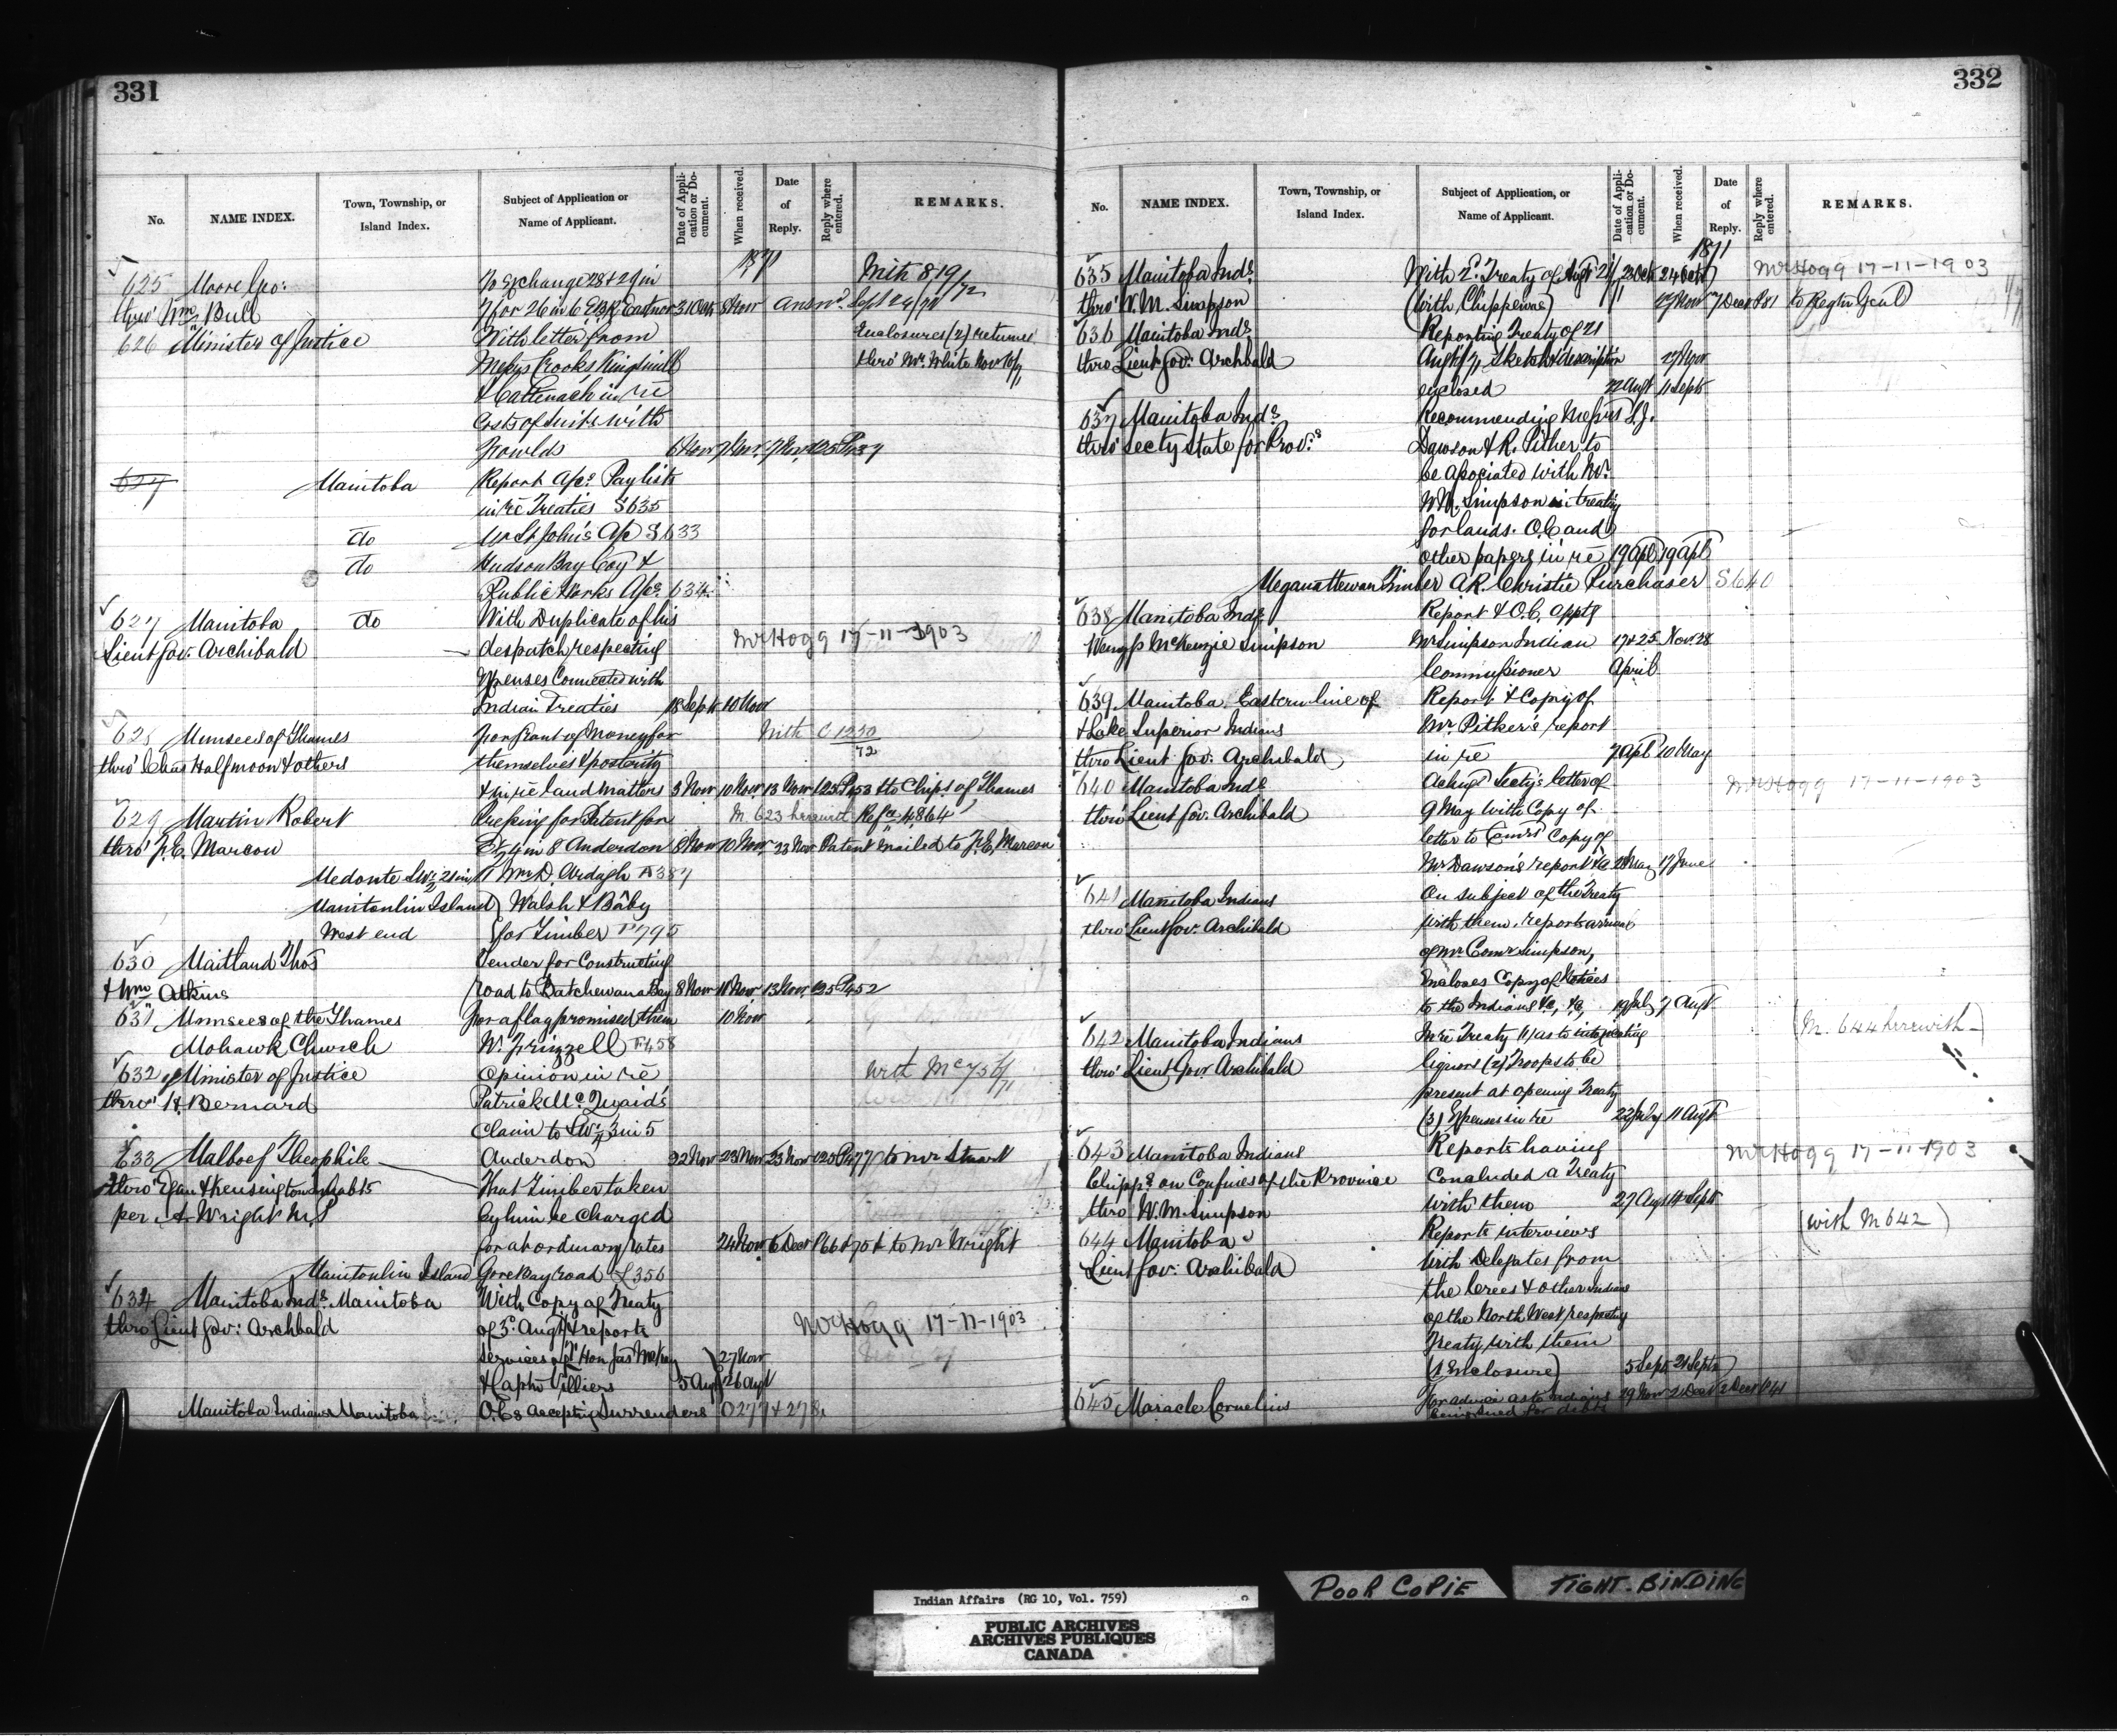 331
No. NAME INDEX. Town, Township, or Island Index. Subject of Application or Name of Applicant. Date of Application or Document. When received. Date of Reply. Reply where entered. REMARKS.
1871
625 Moore Geo: To Exchange 28 & 29 in With 819/72
thro' Wm. Bull 7 for 26 in 6 EBR Eastnor 31 Oct 8 Nov Answd. Sept 24/72
626 Minister of Justice With letter from Enclosures (2) returned
Messrs Crooks Kingsmill thro' Mr. White Nov
& Cattenach in re
Costs of Suits with
Fowlds 6 Nov 7 Nov. 7 Nov. 125 P437
627 Manitoba Report A/cs. Paylists
in re Treaties S635
do Mr St John's A/c S633
do Hudson Bay Coy &
Public Works A/cs. 634.
627 Manitoba do With Duplicate of his
Lieut Gov. Archibald despatch respecting Mr Hogg 17-11-1903
Expenses Connected with
Indian Treaties 18 Sept 10 Nov
628 Munsees of Thames for Grant of Money for With C 1230/72
thro' Chas Halfmoon & others themselves & posterity
& in re land matters 3 Nov 10 Nov 13 Nov 125 P453 to Chips. of Thames
629 Martin Robert Pressing for Patent for M. 623 herewith Refce. 4864
thro' F.E. Marcon E½ 4 in 8 Anderdon 8 Nov 10 Nov. 23 Nov Patent mailed to F.E. Marcon
Medonte SW½ 21 in 11 Mr D. Ardagh A387
Manitoulin Island Walsh & Bâby
West end for Timber W795
630 Maitland Thos Tender for Constructing
& Wm Atkins road to Batchewana Bay 8 Nov 11 Nov 13 Nov. 125 P452
631 Munsees of the Thames for a flag promised them 10 Nov
Mohawk Church W. Frizzell F458
632 Minister of Justice Opinion in re with Mc 756/71
thro' H. Bernard Patrick McQuaid's
Claim to SW¼ 3 in 5
633 Malboef Theophile Anderdon 22 Nov 23 Nov 23 Nov 125 P477 to Mr Stuart
thro' Egan & Kensington Inhabts That Timber taken
per A. Wright M.P by him be charged
for at ordinary rates 24 Nov 6 Decr P66 & 70 to Mr Wright
Manitoulin Island Gore Bay road L356
634 Manitoba Inds. Manitoba With Copy of Treaty
thro Lieut Gov: Archbald of 3d. Augt & reports Mr Hogg 17-11-1903
services of Hon Jas McKay 27 Nov
& Captn Villiers 5 Aug 26 Augt
Manitoba Indians Manitoba O.C.s accepting Surrenders O277 & 278.
332
No. NAME INDEX. Town, Township, or Island Index. Subject of Application, or Name of Applicant. Date of Application or Document. When received. Date of Reply. Reply where entered. REMARKS.
1871
635 Manitoba Inds. With 2d. Treaty of Augt 21/71 2 Oct 24 Oct Mr Hogg 17-11-1903
thro' W. M. Simpson (with Chippewas) 27 Nov 7 Decr P81 to Regtr Genl
636 Manitoba Inds. Reporting Treaty of 21
thro Lieut Gov: Archbald Augt/71, Sketch & description 27 Nov
enclosed 22 Augt 11 Sept
637 Manitoba Inds. Recommending Messrs S.J.
thro' Secty State for Provs. Dawson & R. Pither to
be associated with Mr.
W.M. Simpson in treating
for lands. O.C. and
other papers in re 19 Apl 19 Apl
Meganattewan Timber A R. Christie Purchaser S640
638 Manitoba Inds. Report & O.C. apptg
Wemyss McKenzie Simpson Mr Simpson Indian 17 & 25 Nov. 28
Commissioner April
639 Manitoba, Eastern line of Report & Copy of
& Lake Superior Indians Mr. Pither's report
thro Lieut Gov: Archbald in re 7 Apl 10 May
640 Manitoba Inds. Ackngs Secty's letter of Mr Hogg 17-11-1903
thro' Lieut Gov. Archibald 9 May with Copy of
letter to Comrs Copy of
Mr Dawson's report &c 28 May 17 June
641 Manitoba Indians On subject of the Treaty
thro' Lieut Gov. Archibald with them, reports arrival
of Mr Comr Simpson,
Encloses Copy of Notices
to the Indians &c, &c, 19 July 7 Augt
(M. 644 herewith)
642 Manitoba Indians In re Treaty (1) as to intoxicating
thro' Lieut Govr Archibald liquors (2) Troops to be
present at opening Treaty
(3) Expenses in re 22 July 11 Augt
643 Manitoba Indians Reports having Mr Hogg 17-11-1903
Chipps. on Confines of the Province Concluded a Treaty
thro W. M. Simpson with them 27 Augt 14 Sept
644 Manitoba Reports interviews (with M 642)
Lieut Gov: Archibald with Delegates from
the Crees & other Indians
of the North West respecting
Treaty with them
(1 Enclosure) 5 Sept 21 Sept
645 Maracle Cornelius for advice as to Indians 29 Nov 2 Decr 2 Decr P41
being sued for debts
POOR COPIE
TIGHT-BINDING
Indian Affairs (RG 10, Vol. 759)
PUBLIC ARCHIVES
ARCHIVES PUBLIQUES
CANADA